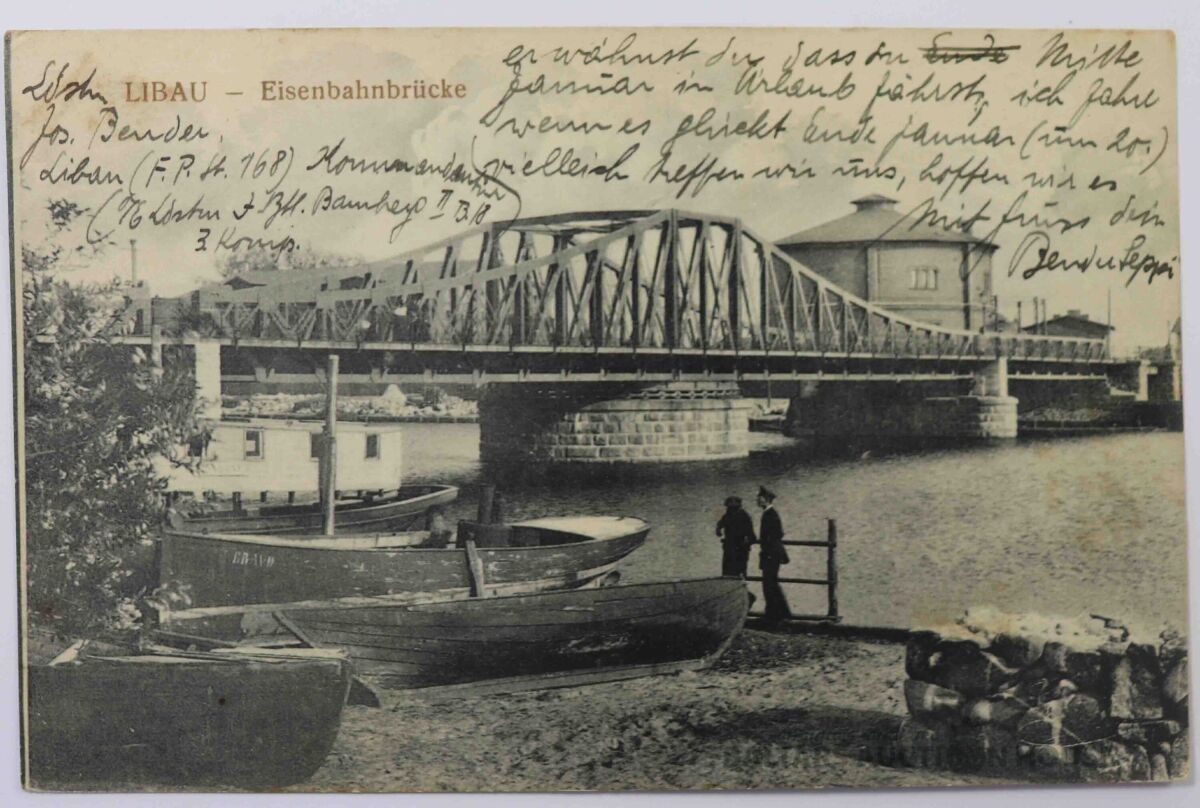 LIBAU – Eisenbahnbrücke
Ldstm
Jos. Bender,
Libau (F. P. St. 168) Kommandantur
Ldstm I. Btl. Bamberg II B/8
3. Komp.
erwähnst du dass du Ende Mitte
Januar in Urlaub fährst, ich fahre
wenn es glückt Ende Januar (um 20.)
vielleich treffen wir uns, hoffen wir es
Mit Gruss dein
Bender Seppi
BRAVO
AUCTION HOUSE